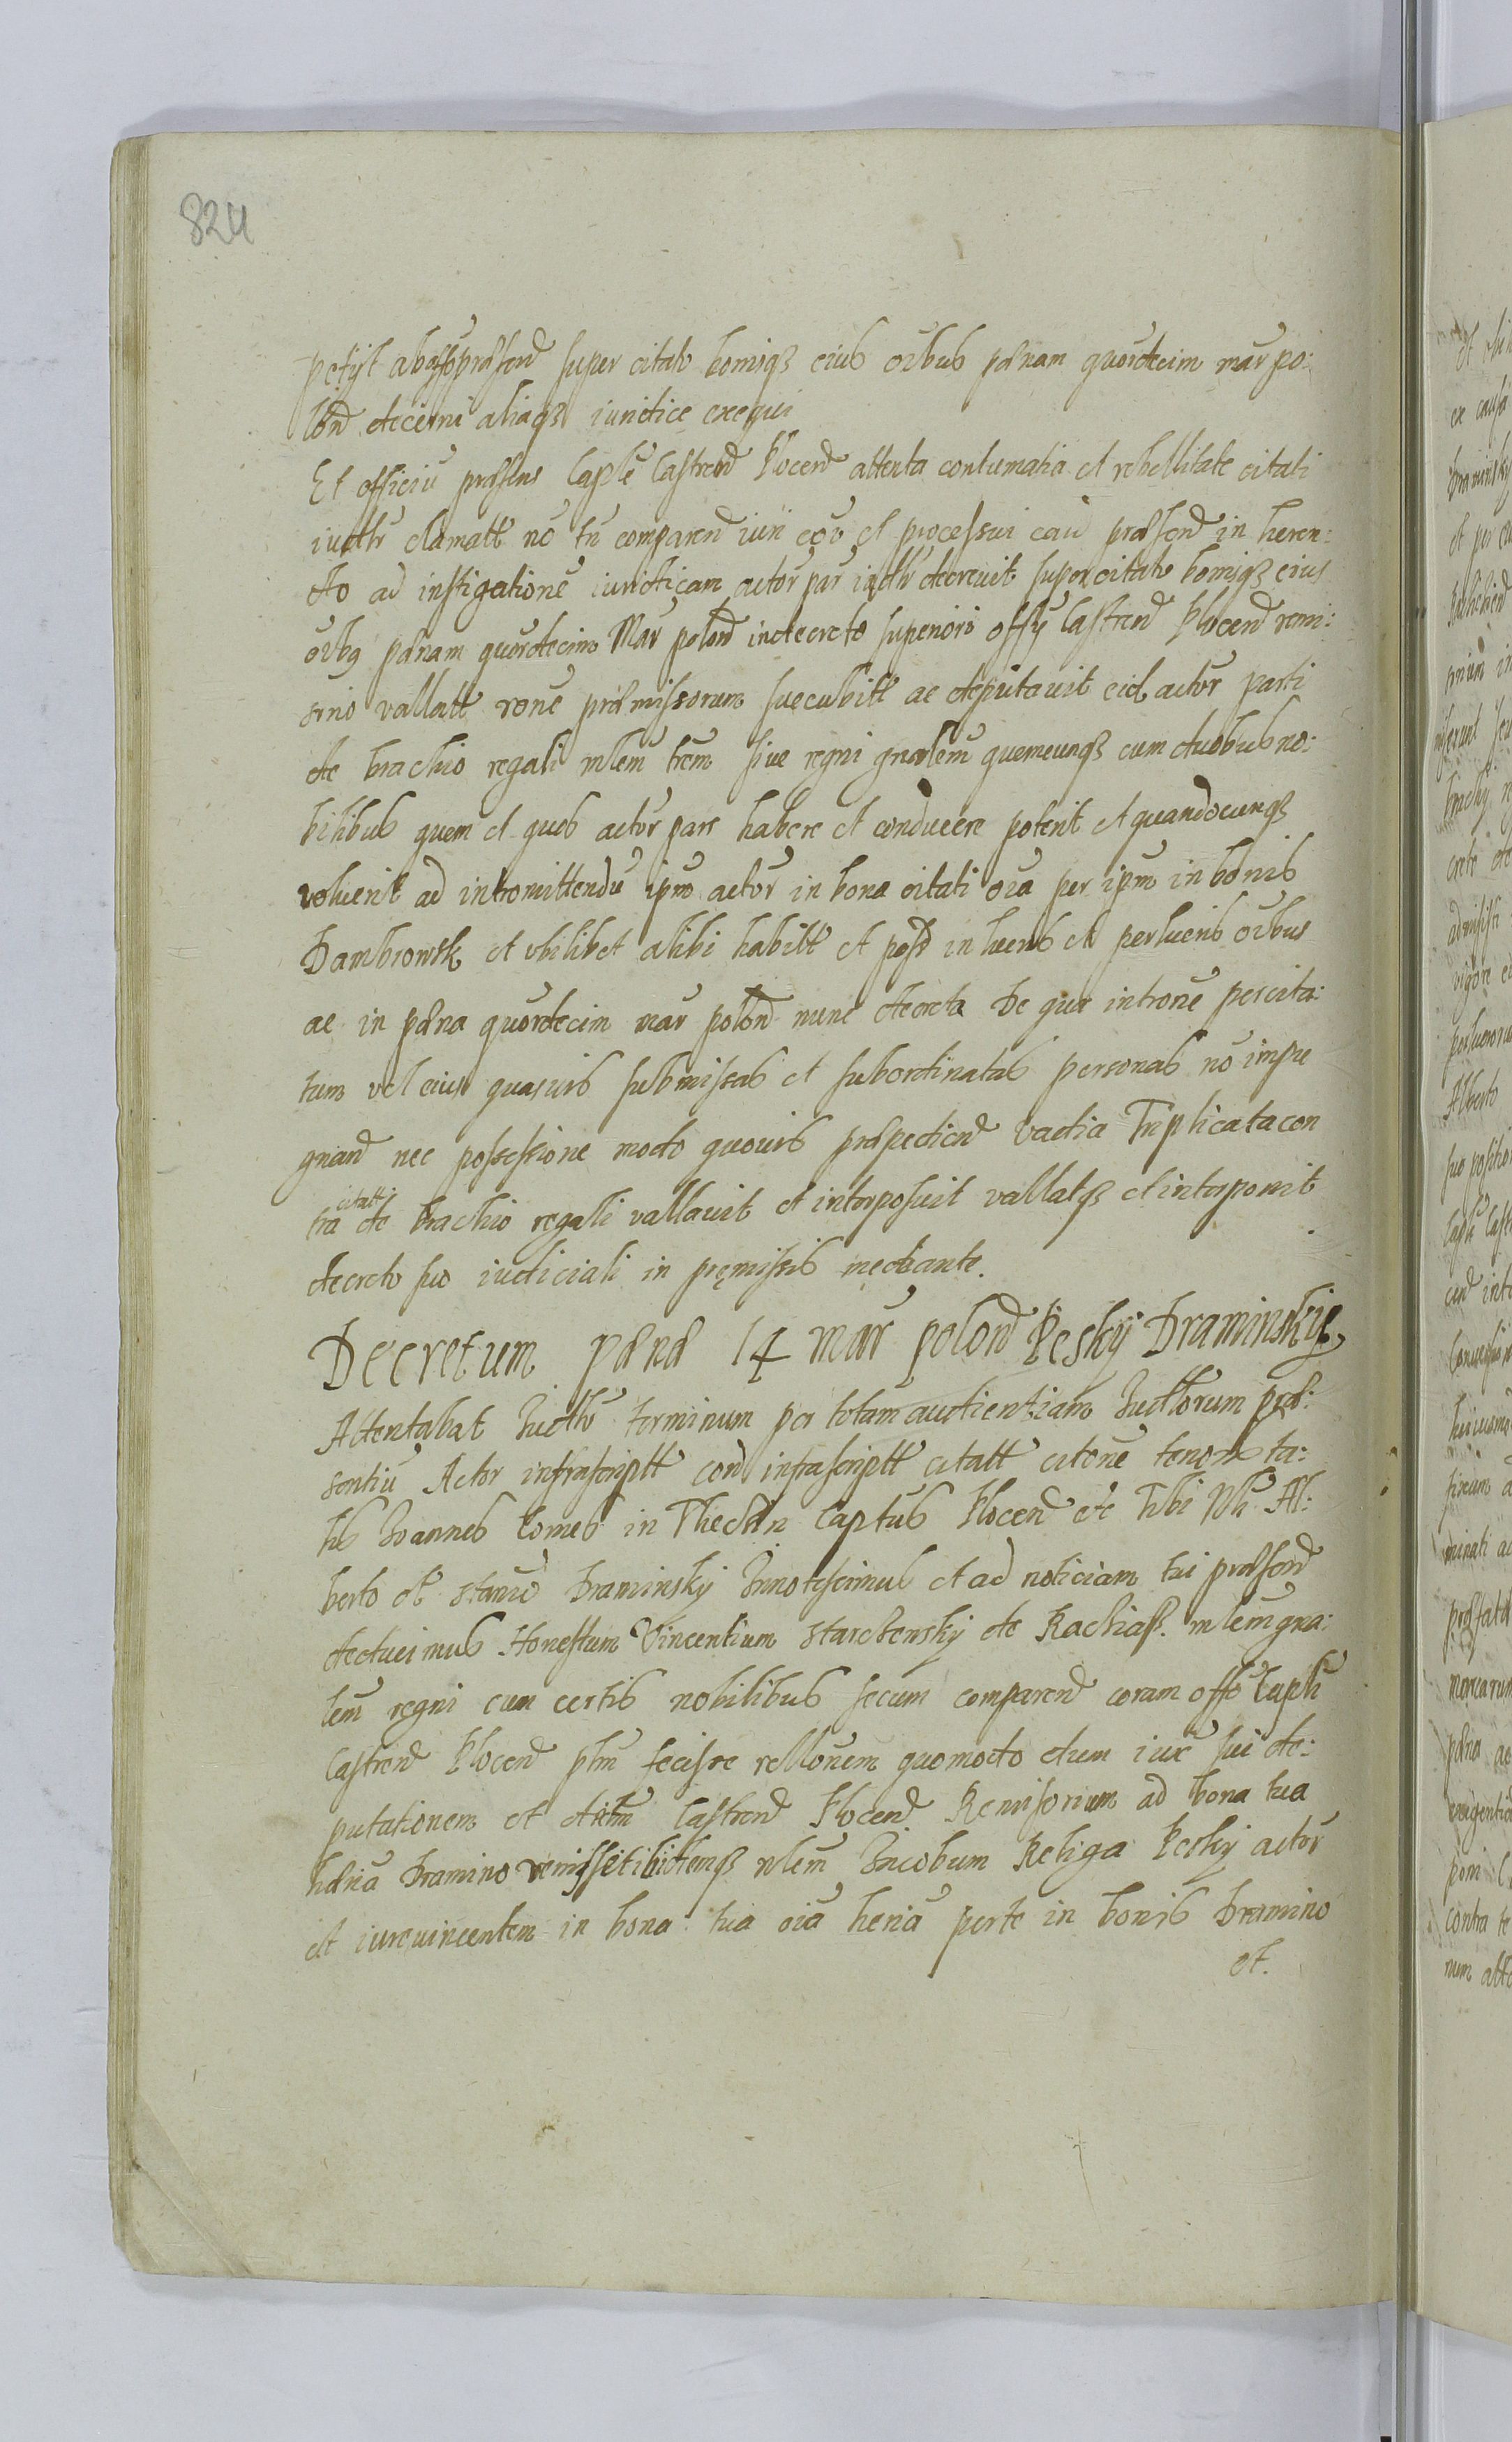 824
petijt ab offo præsend super citato bonisqз eius oibus pænam quordecim mar po:
lond decerni aliaqз iuridice exequi
Et officiu præsens Caple Castrend Plocend attenta contumatia et rebellitate citati
iudtr clamatt nō tn comparen iuri eoū et processui caū præsend in heren:
do ad instigationē iuridicam actor par iudtr decrevit super citato bonisqз eius
oibg pænam quordecim Mar polond in decreto superiori offy Castrend Plocend remi:
srio vallatt rone præmissorum succubitt ac deputavit eid actor parti
de brachio regali mlem trem sive regni gnalem quemcunqз cum duobus no:
bilibus quem et quos actor pars habere et conducere poterit et quandocunqз
voluerit ad intromittendū ipm actor in bona citati oia per ipm in bonis
Dambrowsk et ubilibet alibi habitt et poss in lucris et perlucris oibus
ac in pæna quordecim mar polond nunc decreta De qua intronē per cita:
tum vel eius quasvis submissas et subordinatas personas nō impu
gnand nec possessione modo quovis præpediend vadia Triplicata con
tra citatt de brachio regali vallavit et interposuit vallatqз et interponit
decreto suo iudiciali in pręmissis mediante.
Decretum pænæ 14 mar polond Pesky Draminskye
Attentabat Iudtr terminum per totam audientiam Iudtiorum præ:
sentiu Actor infrascriptt cond infrascriptt citatt citone tenore ta:
lis Ioannes Comes in Thechin Captus Plocend etc Tibi Nbl Al:
berto ot Stanis Draminsky Innotescimus et ad noticiam tui præsend
deducimus Honestum Vincentium Starchensky de Rachiass. mlem gna:
lem regni cum certis nobilibus secum comparend coram offo Capli
Castrend Plocend plm fecisse rellonem quomodo dum iux sui de:
putationem et dictm Castrend Plocend Remisorium ad bona tua
hdria Dramino venisset ibidemqз nlem Iacobum Religa Pesky actor
et iurevincentem in bona tua oia heria per te in bonis Dramino
ot.